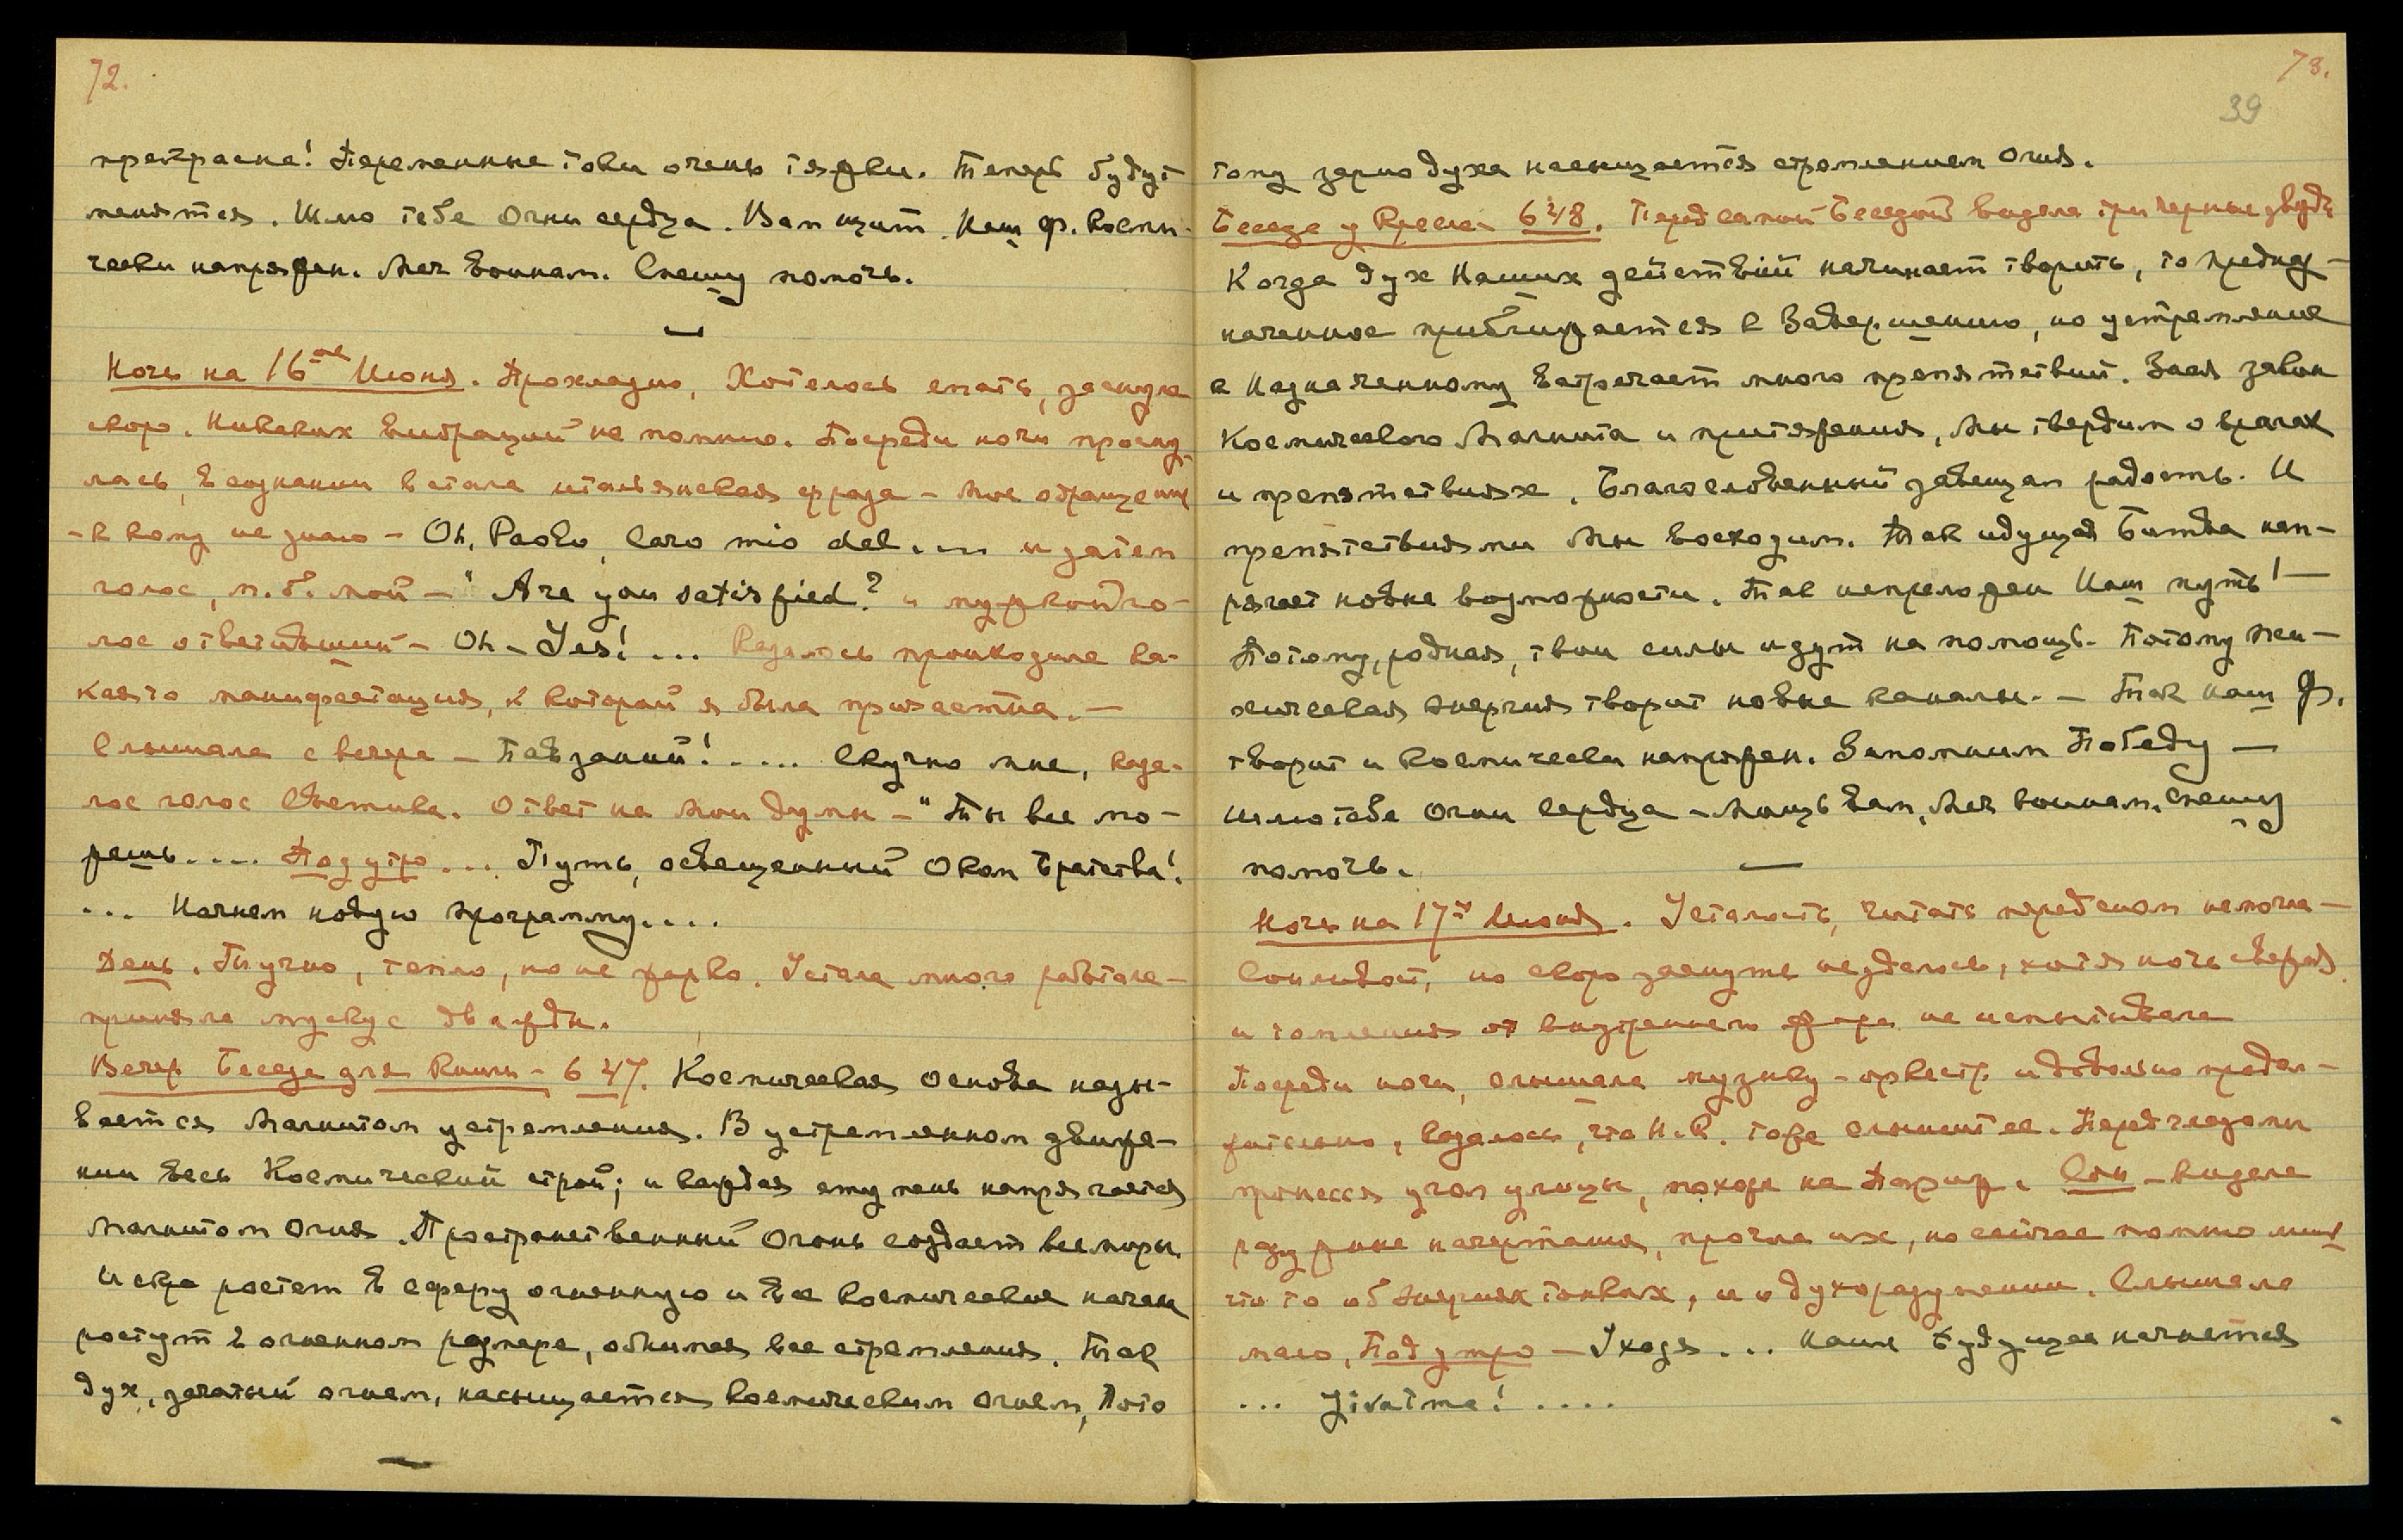 72.
прекрасна! Переменные токи очень тяжки. Теперь будут
меняться. Шлю тебе Огни сердца. Вам щит. Наш ф. Косми-
чески напряжен. Меч воинам. Спешу помочь.
Ночь на 16ое Июня. Прохладно, Хотелось спать, заснула
скоро. Никаких вибраций не помню. Посреди ночи просну-
лась, в сознании встала итальянская фраза – мое обращение
– к кому не знаю – Oh, Paolo, caro mio del.... и затем
голос, м.б. мой – "Are you satisfied? и мужской го-
лос ответивший – Oh – Yes!... Казалось происходила ка-
кая то манифестация, к которой я была причастна. –
Слышала с вечера – Павзаний!.... Скучно мне, каза-
лос голос Светика. Ответ на мои думы – "Ты все мо-
жешь.... Под утро... Путь, освещенный Оком Братства!
... Начнем новую программу....
День. Тучно, тепло, но не жарко. Устала много работала –
приняла мускус дважды.
Вечер Беседа для Книги – 647. Космическая основа назы-
вается Магнитом устремления. В устремленном движе-
нии весь Космический строй; и каждая ступень напрягается
Магнитом Огня. Пространственный Огонь создает все миры.
Искра растет в сферу огненную и все космические начала
растут в огненном размере, обнимая все стремления. Так
дух, зачатый огнем, насыщается космическим огнем, Пото
73.
39
тому зерно духа насыщается стремлением Огня.
Беседа у Кресла 648. Перед самой Беседой видела три черные звезды
Когда дух Наших действий начинает творить, то предназ-
наченное приближается к Завершению, но устремление
к Назначенному встречает много препятствий. Зная закон
Космического Магнита и притяжения, Мы твердим о врагах
и препятствиях. Благословенный завещал радость. И
препятствиями Мы восходим. Так идущая Битва нап-
рягает новые возможности. Так непреложен Наш путь! –
Потому, родная, твои силы идут на помощь. Потому пси-
хическая энергия творит новые каналы. – Так наш ф.
творит и космически напряжен. Запомним Победу –
шлю тебе Огни Сердца – Мощь вам, Меч воинам. Спешу
помочь.
Ночь на 17ое Июня. Усталость, читать перед сном не могла –
Сонливост, но скоро заснуть не удалось, хотя ночь свежая
и томления от внутреннего жара не испытывала
Посреди ночи, слышала музыку – оркестр и довольно продол-
жительно, казалось, что Н.К. тоже слышит ее. Перед глазами
пронесся угол улицы, похож на Париж. Сон – видела
разужние начертания, прочла их, но сейчас помню лишь
что то об энергиях тонких, и о духоразумении. Слышала
мало, Под утро – Уходя... Наше Будущее начнется
... Jivatma!....